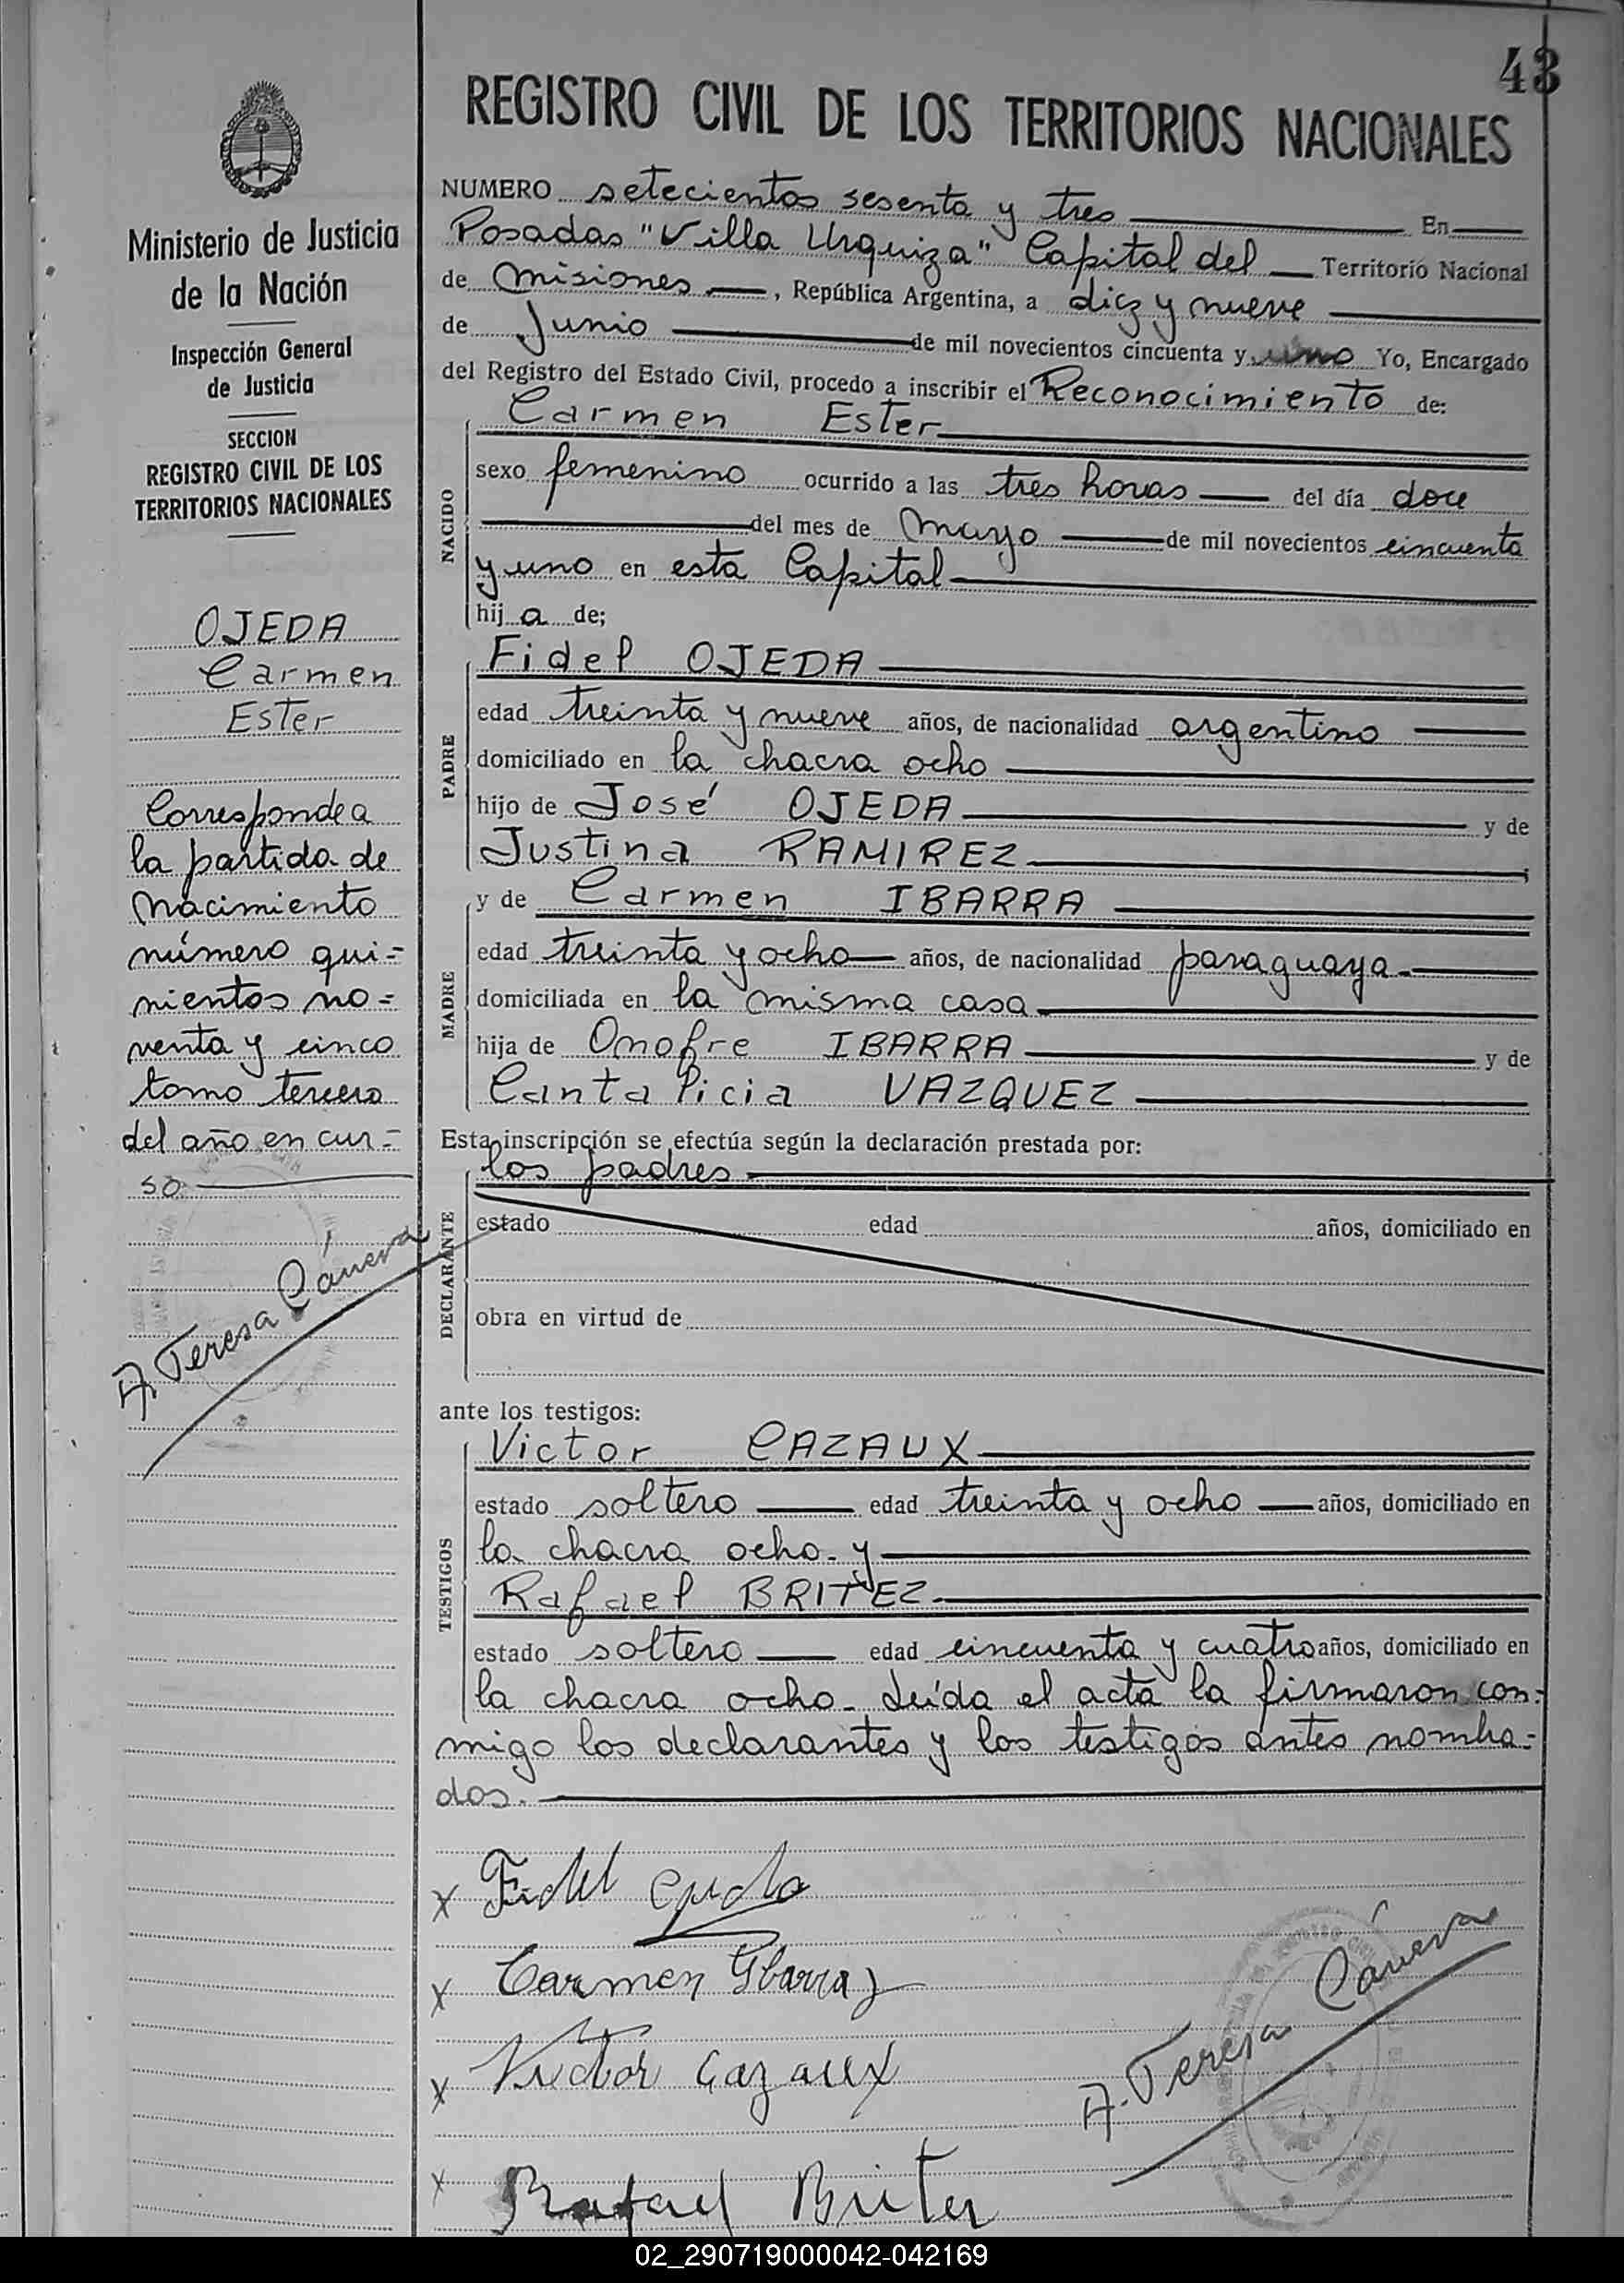 43
REGISTRO CIVIL DE LOS TERRITORIOS NACIONALES
Ministerio de Justicia
de la Nación
Inspección General
de Justicia
SECCION
REGISTRO CIVIL DE LOS
TERRITORIOS NACIONALES
OJEDA
Carmen
Ester
Corresponde a
la partida de
Nacimiento
número qui=
nientos no=
venta y cinco
tomo tercero
del año en cur=
so
A. Teresa Cánera
NUMERO setecientos sesenta y tres En
Posadas "Villa Urquiza" Capital del Territorio Nacional
de Misiones, República Argentina, a diez y nueve
de Junio de mil novecientos cincuenta y uno Yo, Encargado
del Registro del Estado Civil, procedo a inscribir el Reconocimiento de:
NACIDO
Carmen Ester
sexo femenino ocurrido a las tres horas del día doce
del mes de Mayo de mil novecientos cincuenta
y uno en esta Capital
hij a de;
PADRE
Fidel OJEDA
edad treinta y nueve años, de nacionalidad argentino
domiciliado en la chacra ocho
hijo de José OJEDA y de
Justina RAMIREZ ;
MADRE
y de Carmen IBARRA
edad treinta y ocho años, de nacionalidad paraguaya
domiciliada en la misma casa
hija de Onofre IBARRA y de
Cantalicia VAZQUEZ
Esta inscripción se efectúa según la declaración prestada por:
DECLARANTE
los padres
estado edad años, domiciliado en
obra en virtud de
ante los testigos:
TESTIGOS
Victor CAZAUX
estado soltero edad treinta y ocho años, domiciliado en
la chacra ocho. y
Rafael BRITEZ
estado soltero edad cincuenta y cuatro años, domiciliado en
la chacra ocho. Leída el acta la firmaron con-
migo los declarantes y los testigos antes nombra=
dos.
x Fidel Ojeda
x Carmen Ybarra
x Victor Cazaux
x Rafael Briter
A. Teresa Cánera
02_290719000042-042169